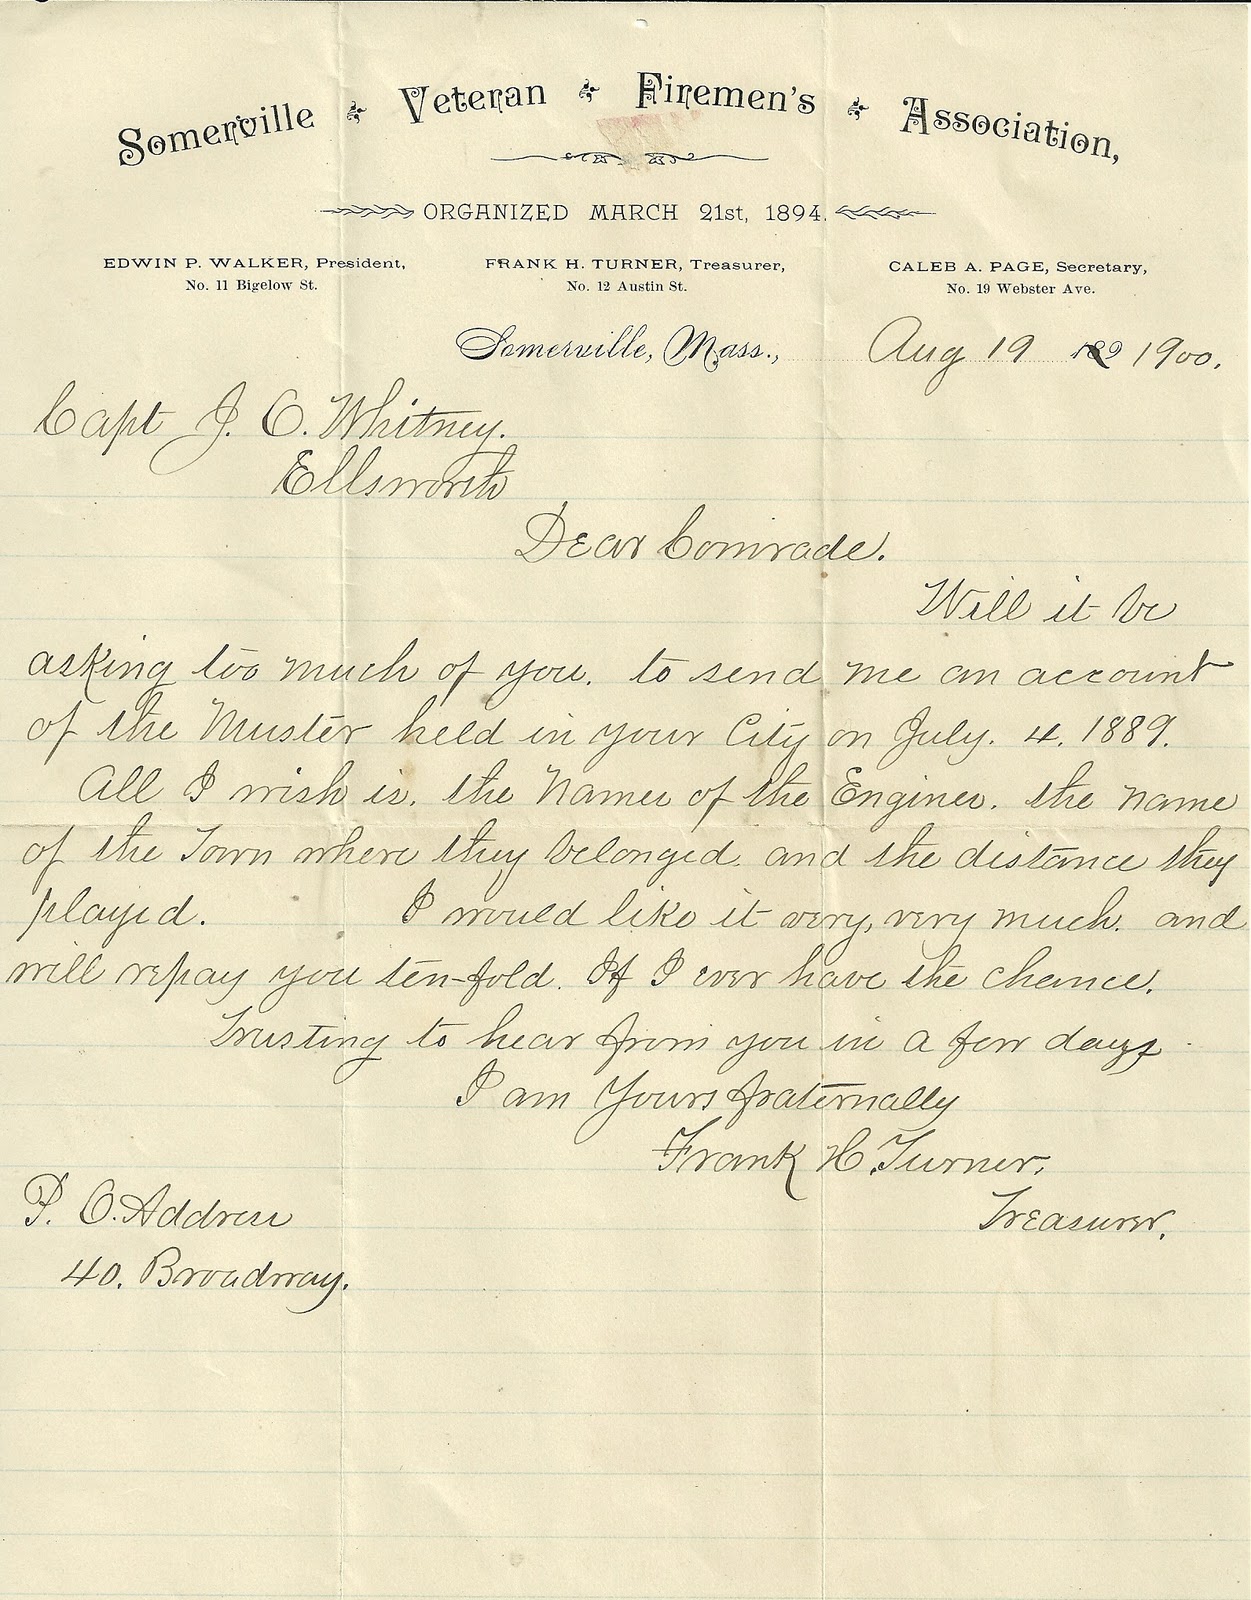 Somerville Veteran Firemen's Association,
ORGANIZED MARCH 21st, 1894.
EDWIN P. WALKER, President,
No. 11 Bigelow St.
FRANK H. TURNER, Treasurer,
No. 12 Austin St.
CALEB A. PAGE, Secretary,
No. 19 Webster Ave.
Somerville, Mass., Aug 19 189 1900.
Capt J. O. Whitney.
Ellsworth
Dear Comrade.
Will it be
asking too much of you. to send me an account
of the Muster held in your City on July. 4. 1889.
All I wish is. the Names of the Engines. the name
of the Town where they belonged. and the distance they
played. I would like it very, very much. and
will repay you ten-fold. If I ever have the chance.
Trusting to hear from you in a few days
I am Yours fraternally
Frank H. Turner.
Treasurer.
P. O. Address
40. Broadway.